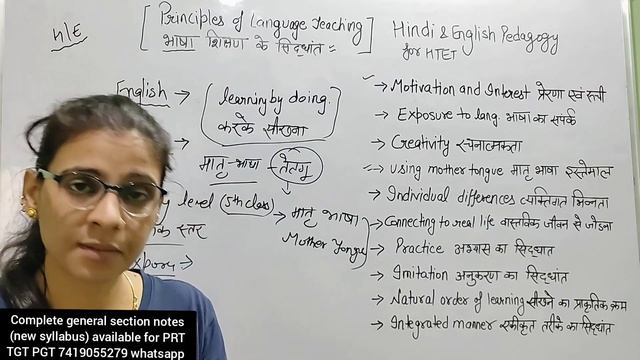 H/E
[ Principles of Language Teaching ]
भाषा शिक्षण के सिद्धांत :-
Hindi & English Pedagogy
for HTET
English →
learning by doing.
करके सीखना
मातृ-भाषा - तेलगू
level (5th class)
स्तर
→ मातृ भाषा
Mother Tongue
→ Motivation and Interest प्रेरणा एवं रूची
→ Exposure to lang. भाषा का संपर्क
→ Creativity रचनात्मकता
→ using mother tongue मातृ भाषा इस्तेमाल
→ Individual differences व्यक्तिगत भिन्नता
→ Connecting to real life वास्तविक जीवन से जोडना
→ Practice अभ्यास का सिद्धांत
→ Imitation अनुकरण का सिद्धांत
→ Natural order of learning सीखने का प्राकृतिक क्रम
→ Integrated manner एकीकृत तरीके का सिद्धांत
Complete general section notes
(new syllabus) available for PRT
TGT PGT 7419055279 whatsapp